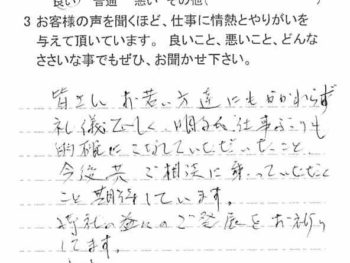 良い 普通 悪い その他( )
3 お客様の声を聞くほど、仕事に情熱とやりがいを
与えて頂いています。 良いこと、悪いこと、どんな
ささいな事でもぜひ、お聞かせ下さい。
皆さん お若い方達にもかかわらず
礼儀正しく、明るく、仕事ぶりも
的確にこなしていただいたこと
今後共 ご相談に乗っていただく
こと期待しています。
御社の益々のご発展をお祈り
してます。